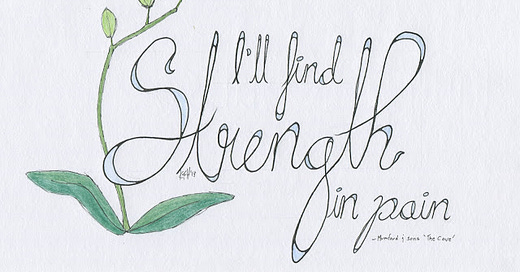 I'll find
Strength
in pain
- Mumford & Sons "The Cave"